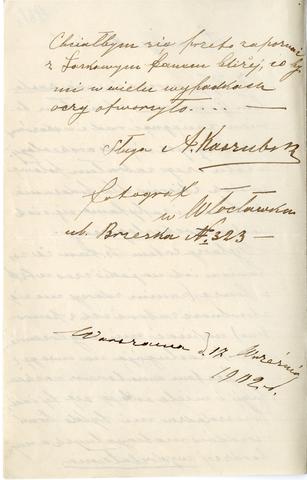 Chciałbym się przeto zapoznać
z Łaskawym Panem bliżej, co by
mi w wielu wypadkach
oczy otworzyło. . . . —
Sługa A. Kaszubski
fotograf
w Włocławku
ul. Brzeska № 323 —
Warszawa 17 Września
1902 r.